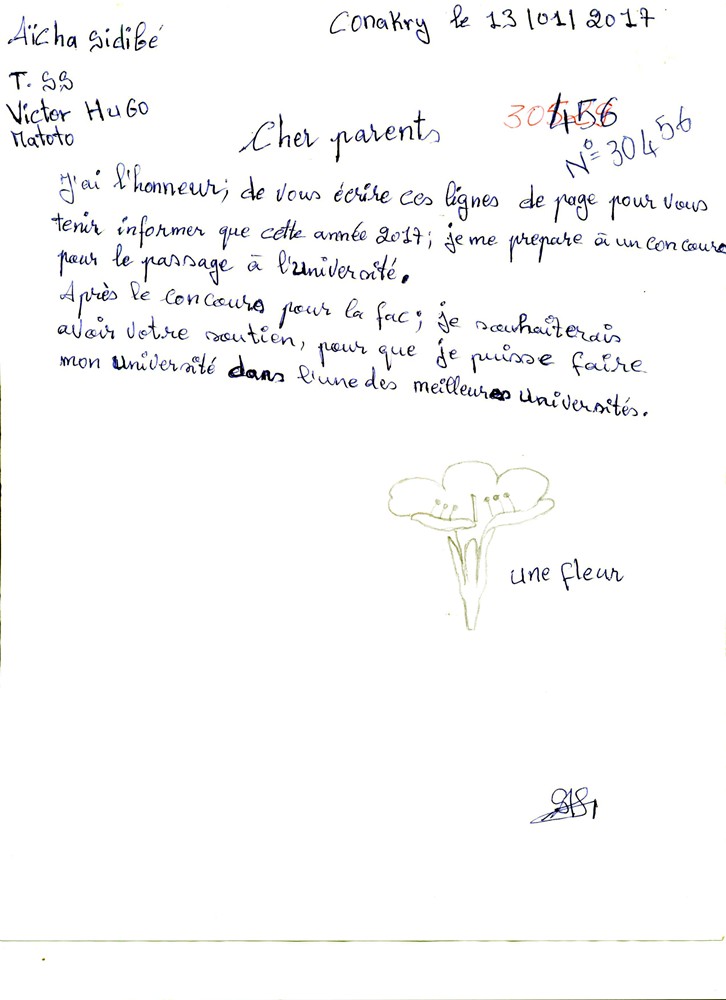 Aïcha Sidibé
Conakry le 13/01/2017
T. SS
Victor HuGO
Matoto
Cher parents
456
N° 30456
J'ai l'honneur; de vous écrire ces lignes de page pour vous
tenir informer que cette année 2017; je me prepare à un concours
pour le passage à l'université.
Après le concours pour la fac; je souhaiterais
avoir votre soutien, pour que je puisse faire
mon université dans l'une des meilleures universités.
une fleur